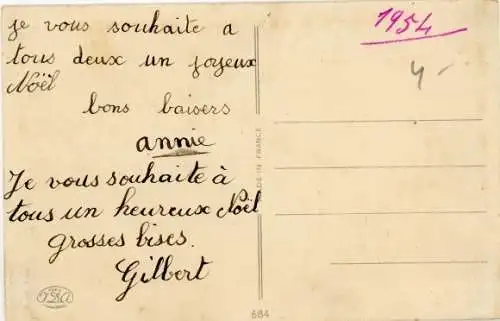 je vous souhaite a
tous deux un joyeux
Noël
bons baisers
annie
Je vous souhaite à
tous un heureux Noël
grosses bises.
Gilbert
1954
4-
DE IN FRANCE
684